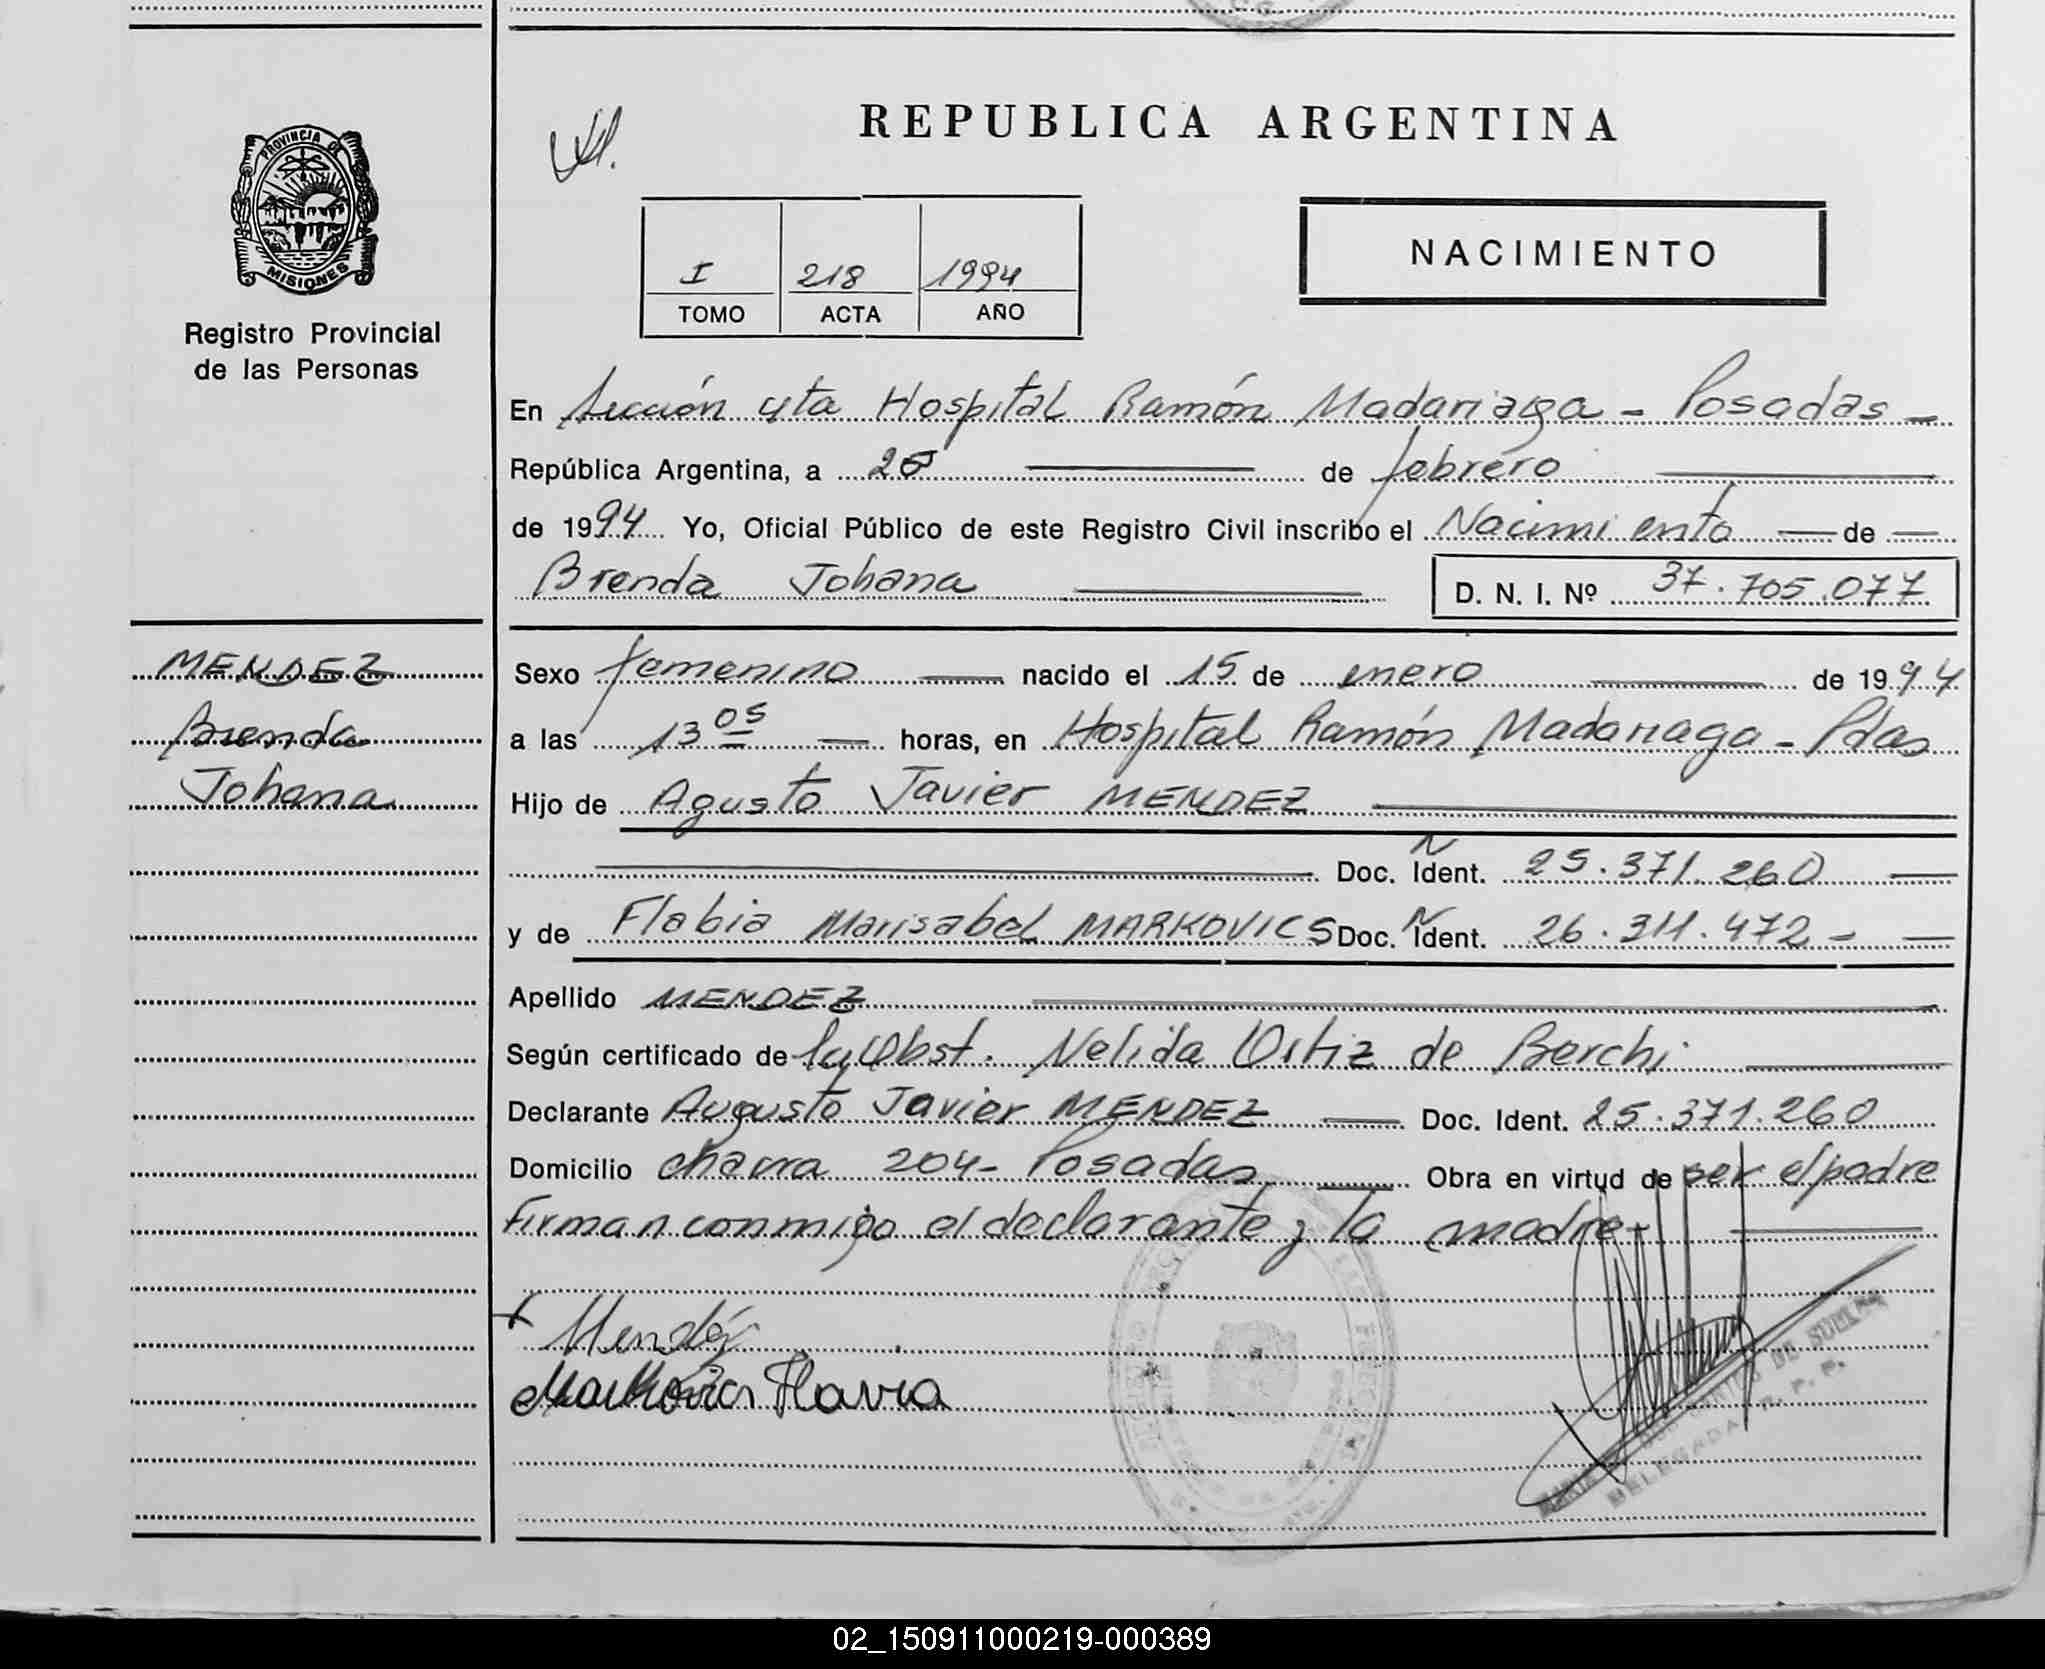 REPUBLICA ARGENTINA
PROVINCIA DE
MISIONES
Registro Provincial
de las Personas
I 218 1994
TOMO ACTA AÑO
NACIMIENTO
En Sección 4ta Hospital Ramón Madariaga - Posadas -
República Argentina, a 25 de febrero
de 1994 Yo, Oficial Público de este Registro Civil inscribo el Nacimiento de
Brenda Johana D. N. I. Nº 37.705.077
MENDEZ
Brenda
Johana
Sexo femenino nacido el 15 de enero de 1994
a las 13 05 horas, en Hospital Ramón Madariaga - Pdas
Hijo de Agusto Javier MENDEZ
Doc. Ident. 25.371.260
y de Flabia Marisabel MARKOVICS Doc. Ident. 26.311.472 -
Apellido MENDEZ
Según certificado de la Obst. Nelida Ortiz de Berchi
Declarante Augusto Javier MENDEZ Doc. Ident. 25.371.260
Domicilio chacra 204 - Posadas Obra en virtud de ser el padre
Firman conmigo el declarante y la madre -
Mendéz
Markovics Flavia
DELEGADA R. P. P.
02_150911000219-000389